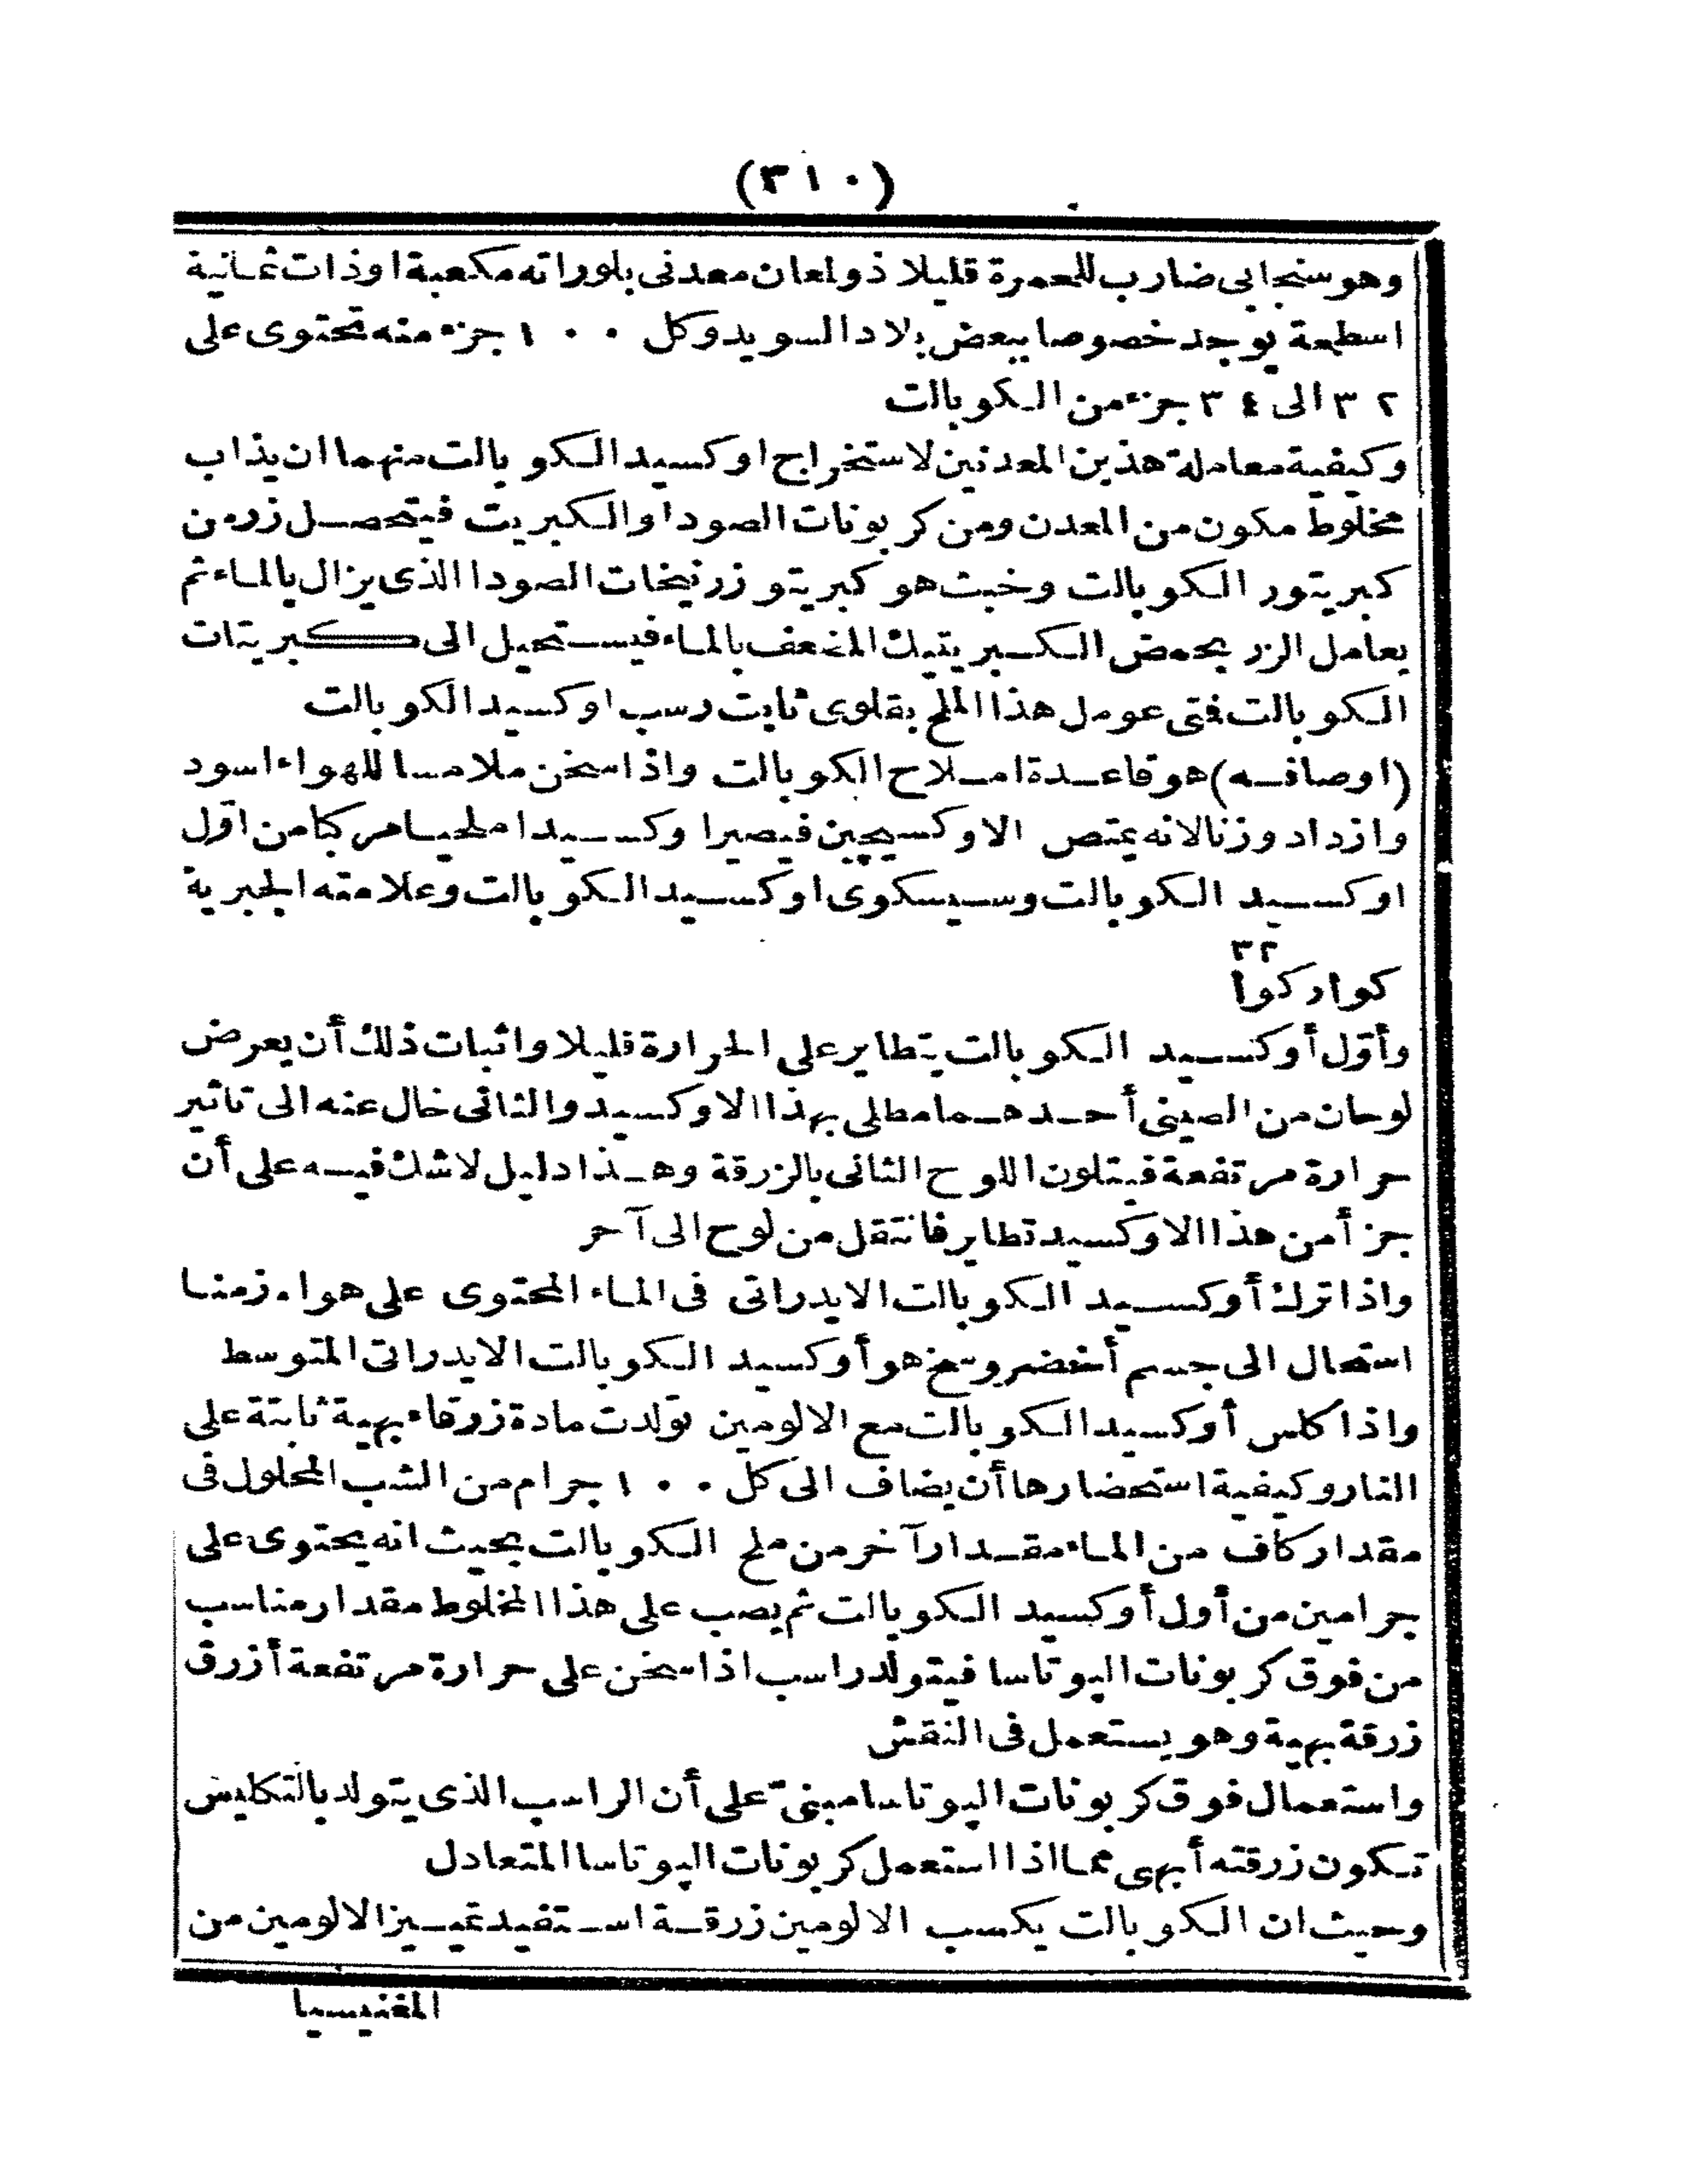 (٣١٠)
وهو سنجابى ضارب للحمرة قليلا ذو لمعان معدنى بلوراته مكعبة اوذات ثمانية
اسطحة يوجد خصوصا ببعض بلاد السويد وكل ١٠٠ جزء منه تحتوى على
٣٢ الى ٣٤ جزء من الكوبالت
وكيفية معاملة هذين المعدنين لاستخراج اوكسيد الكوبالت منهما ان يذاب
مخلوط مكون من المعدن ومن كربونات الصودا والكبريت فيتحصل زر من
كبريتور الكوبالت وخبث هو كبريتو زرنيخات الصودا الذى يزال بالماء ثم
يعامل الزر بحمض الكبريتيك المضعف بالماء فيستحيل الى كبريتات
الكوبالت فتى عومل هذا الملح بقلوى ثابت رسب اوكسيد الكوبالت
(اوصافه) هو قاعدة املاح الكوبالت واذا سخن ملامسا للهواء اسود
وازداد وزنا لانه يمتص الاوكسيجين فيصير اوكسيدا ملحيا مركبا من اقل
اوكسيد الكوبالت وسيسكوى اوكسيد الكوبالت وعلامته الجبرية
٣٢
كوا ر كوا
وأقل أوكسيد الكوبالت يتطاير على الحرارة قليلا واثبات ذلك أن يعرض
لوحان من الصينى أحدهما مطلى بهذا الاوكسيد والثانى خال عنه الى تاثير
حرارة مرتفعة فيتلون اللوح الثانى بالزرقة وهذا دليل لاشك فيه على أن
جزأ من هذا الاوكسيد تطاير فانتقل من لوح الى آخر
واذا ترك أوكسيد الكوبالت الايدراتى فى الماء المحتوى على هواء زمنا
استحال الى جسم أخضر وسخ هو أوكسيد الكوبالت الايدراتى المتوسط
واذا كلس أوكسيد الكوبالت مع الالومين تولدت مادة زرقاء بهية ثابتة على
النار وكيفية استحضارها أن يضاف الى كل ١٠٠ جرام من الشب المحلول فى
مقدار كاف من الماء مقدار آخر من ملح الكوبالت بحيث انه يحتوى على
جرامين من أول أوكسيد الكوبالت ثم يصب على هذا المخلوط مقدار مناسب
من فوق كربونات البوتاسا فيتولد راسب اذا سخن على حرارة مرتفعة أزرق
زرقة بهية وهو يستعمل فى النقش
واستعمال فوق كربونات البوتاسا مبنىّ على أن الراسب الذى يتولد بالتكليس
تكون زرقته أبهى مما اذا استعمل كربونات البوتاسا المتعادل
وحيث ان الكوبالت يكسب الالومين زرقة استفيد تمييز الالومين من
المغنيسيا